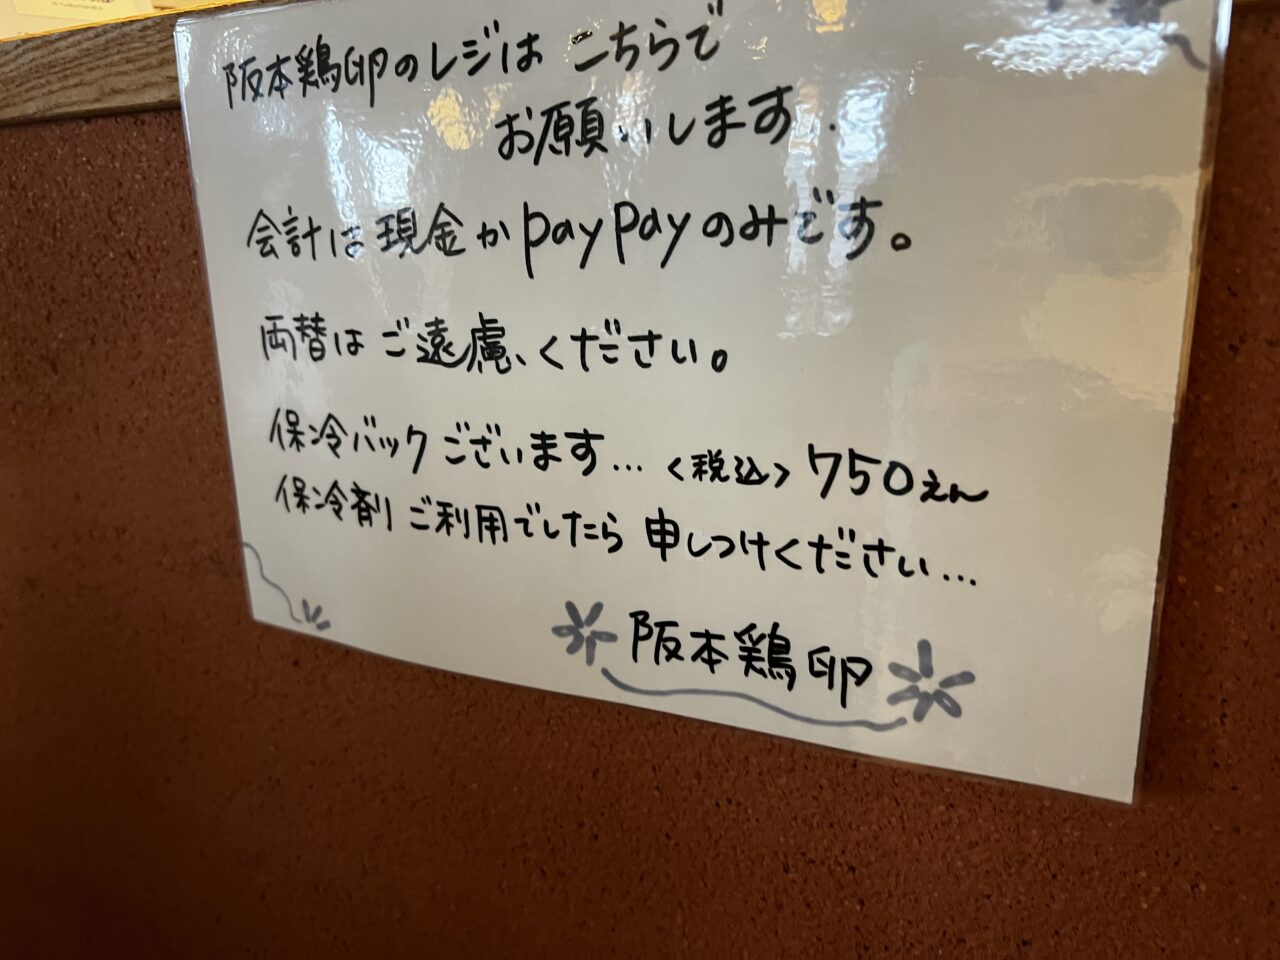 阪本鶏卵のレジは こちらで
お願いします.
会計は現金か PayPayのみです。
両替は ご遠慮、ください。
保冷バック ございます… <税込> 750えん
保冷剤 ご利用でしたら 申しつけください…
阪本鶏卵